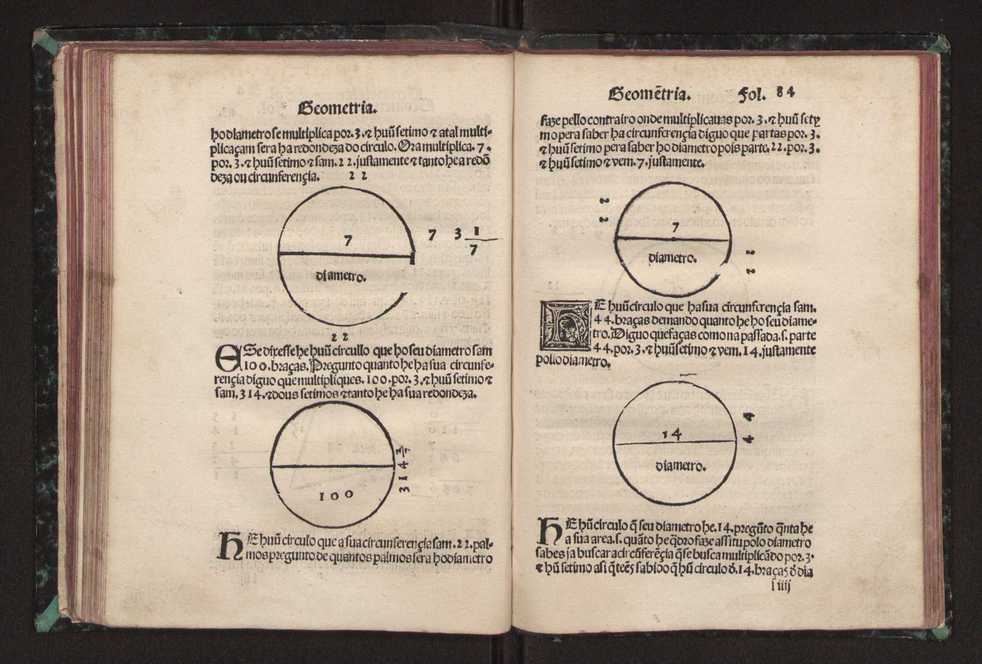 Geometria.
ho diametro se multiplica por. 3. & huũ setimo & a tal multi-
plicaçam sera ha redondeza do circulo. Ora multiplica. 7.
por. 3. & huũ setimo & sam. 22. justamente & tanto he a redõ
deza ou circunferençia.
22
7
diametro.
7 3 1/7
22
E Se dixesse he huũ circullo que ho seu diametro sam
100. braças. Pregunto quanto he ha sua circunfe-
rençia diguo que multipliques. 100. por. 3. & huũ setimo &
sam. 314. & dous setimos & tanto he ha sua redondeza.
100
314 2/7
HE huũ circulo que a sua circunferençia sam. 22. pal-
mos pregunto de quantos palmos sera ho diametro
Geomẽtria. Fol. 84
faze pello contrairo onde multiplicauas por. 3. & huũ sety
mo pera saber ha circunferençia diguo que partas por. 3.
& huũ setimo pera saber ho diametro pois parte. 22. por. 3.
& huũ setimo & vem. 7. justamente.
22
7
diametro.
22
HE huũ circulo que ha sua circunferençia sam.
44. braças demando quanto he ho seu diame-
tro. Diguo que faças como na passada. s. parte
44. por. 3. & huũ setimo & vem. 14. justamente
pollo diametro.
14
diametro.
44
HE hũ circulo q̃ seu diametro he. 14. pregũto q̃nta he
a sua area. s. quãto he q̃dro faze assi tu polo diametro
sabes ja buscar a circũferẽçia q̃ se busca multiplicãdo por. 3.
& hũ setimo asi q̃ tẽes sabido q̃ hũ circulo d̃. 14. braças d̃ dia
l iiij